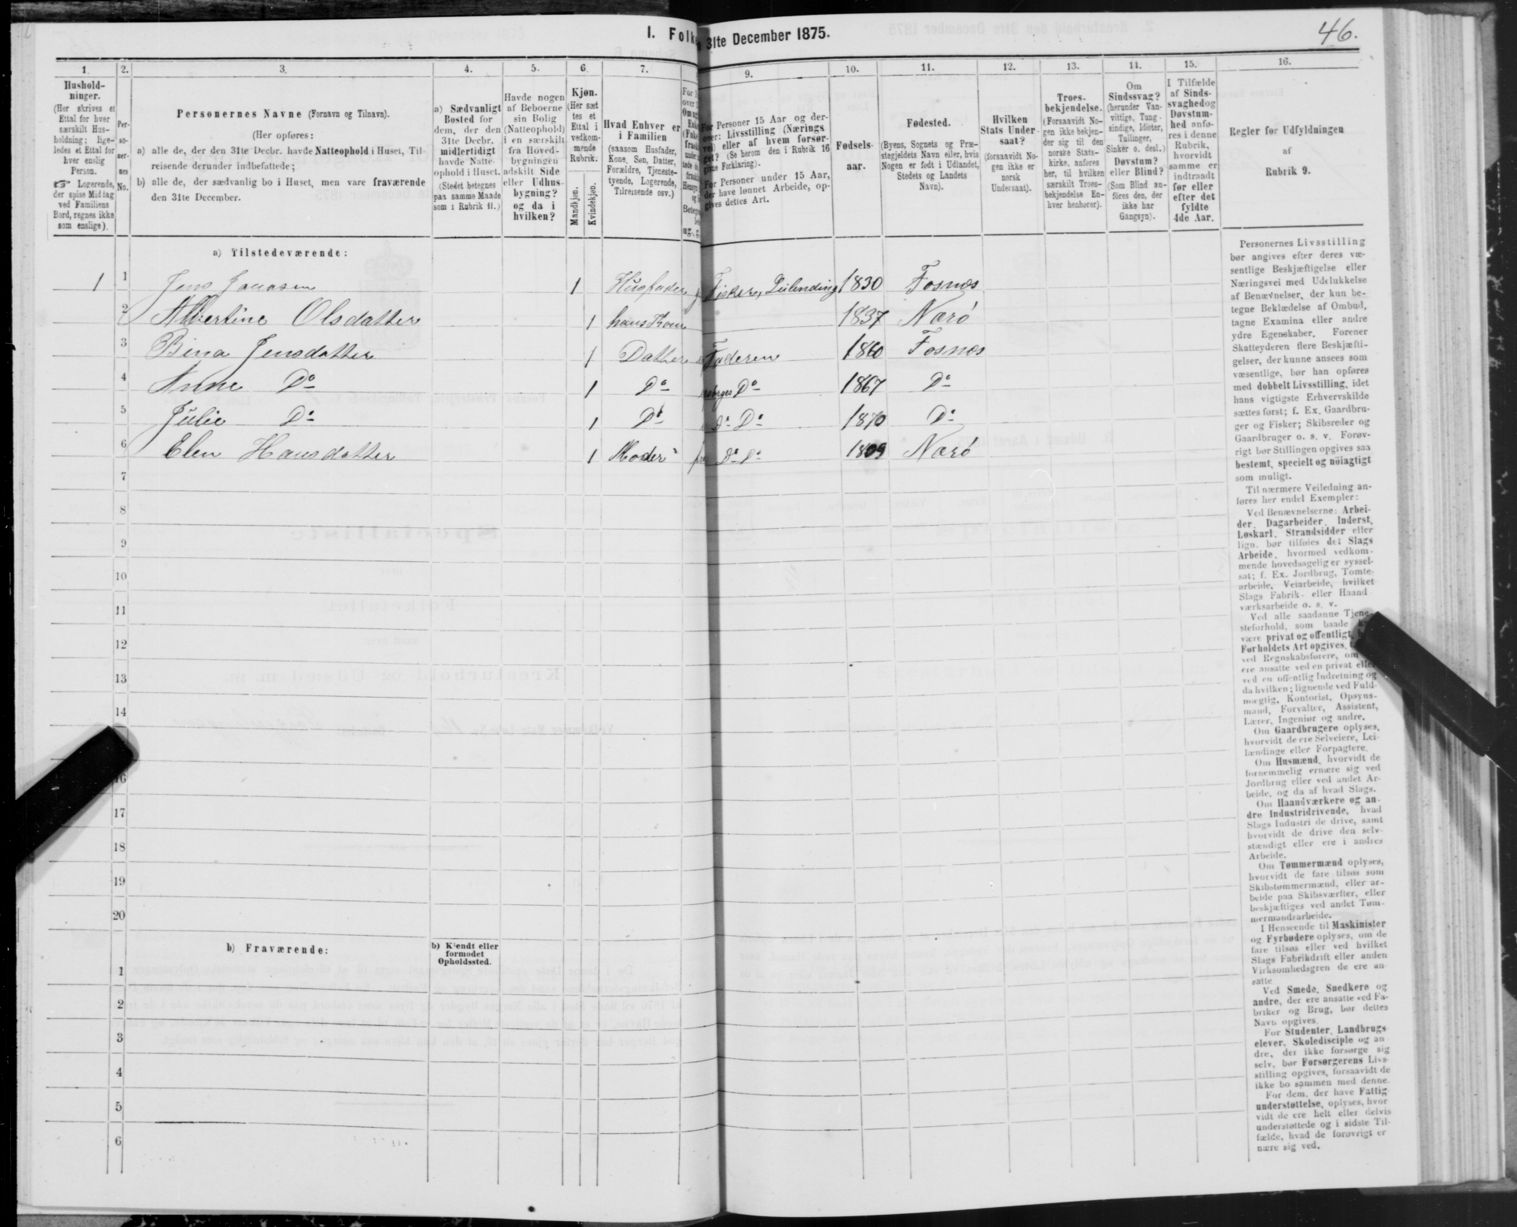 46.
I. Folk
31te December 1875.
1.
2.
3.
4.
5.
6.
7.
9.
10.
11.
12.
13.
14.
15.
16.
Hushold-
ninger.
(Her skrives et
Ettal for hver
særskilt Hus-
holdning; lige-
ledes et Ettal for
hver enslig
Person.
☞ Logerende,
der spise Middag
ved Familiens
Bord, regnes ikke
som enslige).
Per-
so-
ner-
nes
No.
Personernes Navne (Fornavn og Tilnavn).
(Her opføres:
a) alle de, der den 31te Decbr. havde Natteophold i Huset, Til-
reisende derunder indbefattede;
b) alle de, der sædvanlig bo i Huset, men vare fraværende
den 31te December.
a) Sædvanligt
Bosted for
dem, der den
31te Decbr.
midlertidigt
havde Natte-
ophold i Huset.
(Stedet betegnes
paa samme Maade
som i Rubrik 11.)
Havde nogen
af Beboerne
sin Bolig
(Natteophold)
i en særskilt
fra Hoved-
bygningen
adskilt Side
eller Udhus-
bygning?
og da i
hvilken?
Kjøn.
(Her sæt
tes et
Ettal i
vedkom-
mende
Rubrik.
Mandkjøn.
Kvindekjøn.
Hvad Enhver er
i Familien
(saasom Husfader,
Kone, Søn, Datter,
Forældre, Tjeneste-
tyende, Logerende,
Tilreisende osv.)
For Personer 15 Aar og der-
over: Livsstilling (Nærings
vei) eller af hvem forsør-
get? (Se herom den i Rubrik 16
givne Forklaring).
For Personer under 15 Aar,
der have lønnet Arbeide, op-
gives dettes Art.
Fødsels-
aar.
Fødested.
(Byens, Sognets og Præ-
stegjeldets Navn eller, hvis
Nogen er født i Udlandet,
Stedets og Landets
Navn).
Hvilken
Stats Under-
saat?
(forsaavidt No-
gen ikke er
norsk
Undersaat).
Troes-
bekjendelse.
(Forsaavidt No-
gen ikke bekjen-
der sig til den
norske Stats-
kirke, anføres
her, til hvilken
særskilt Troes-
bekjendelse En-
hver henhører).
Om
Sindssvag?
(herunder Van-
vittige, Tung-
sindige, Idioter,
Tullinger,
Sinker o. desl.)
Døvstum?
eller Blind?
(Som Blind an-
føres den, der
ikke har
Gangsyn).
I Tilfælde
af Sinds-
svaghed og
Døvstum-
hed anfø-
res i denne
Rubrik,
hvorvidt
samme er
indtraadt
før eller
efter det
fyldte
4de Aar.
Regler før Udfyldningen
af
Rubrik 9.
a) Tilstedeværende:
1 1 Jens Jonasen 1 Husfader Fisker, Leilending 1830 Fosnæs
2 Albertine Olsdatter 1 hans Kone 1837 Nærø
3 Bina Jensdatter 1 Datter Faderen 1860 Fosnæs
4 Anne Do 1 Do Do 1867 Do
5 Julie Do 1 Do Do Do 1870 Do
6 Elen Hansdatter 1 Moder Do Do 1809 Nærø
7
8
9
10
11
12
13
14
16
17
18
19
20
b) Fraværende:
b) Kjendt eller
formodet
Opholdssted.
1
2
3
4
5
6
Personernes Livsstilling
bør angives efter deres væ-
sentlige Beskjæftigelse eller
Næringsvei med Udelukkelse
af Benævnelser, der kun be-
tegne Beklædelse af Ombud,
tagne Examina eller andre
ydre Egenskaber. Forener
Skatteyderen flere Beskjæfti-
gelser, der kunne ansees som
væsentlige, bør han opføres
med dobbelt Livsstilling, idet
hans vigtigste Erhvervskilde
sættes først; f. Ex. Gaardbru-
ger og Fisker; Skibsreder og
Gaardbruger o. s. v. Forøv-
rigt bør Stillingen opgives saa
bestemt, specielt og nøiagtigt
som muligt.
Til nærmere Veiledning an-
føres her endel Exempler:
Ved Benævnelserne: Arbei-
der, Dagarbeider, Inderst,
Løskarl, Strandsidder eller
lign. bør tilføies det Slags
Arbeide, hvormed vedkom-
mende hovedsagelig er syssel-
sat; f. Ex. Jordbrug, Tomte-
arbeide, Veiarbeide, hvilket
Slags Fabrik- eller Haand
værksarbeide o. s. v.
Ved alle saadanne Tjene-
steforhold, som baade
være privat og offentligt,
Forholdets Art opgives,
ved Regnskabsførere, om
ere ansatte ved en privat eller
ved en offentlig Indretning og
da hvilken; lignende ved Fuld-
mægtig, Kontorist, Opsyns-
mand, Forvalter, Assistent,
Lærer, Ingeniør og andre.
Om Gaardbrugere oplyses,
hvorvidt de ere Selveiere, Lei-
lændinge eller Forpagtere.
Om Husmænd, hvorvidt de
fornemmelig ernære sig ved
Jordbrug eller ved andet Ar-
beide, og da af hvad Slags.
Om Haandværkere og an-
dre Industridrivende, hvad
Slags Industri de drive, samt
hvorvidt de drive den selv-
stændigt eller ere i andres
Arbeide.
Om Tømmermænd oplyses,
hvorvidt de fare tilsøs som
Skibstømmermænd, eller ar-
beide paa Skibsværfter, eller
beskjæftiges ved andet Tøm-
mermandsarbeide.
I Henseende til Maskinister
og Fyrbødere oplyses, om de
fare tilsøs eller ved hvilket
Slags Fabrikdrift eller anden
Virksomhedsgren de ere an-
satte.
Ved Smede, Snedkere og
andre, der ere ansatte ved Fa-
briker og Brug, bør dettes
Navn opgives.
For Studenter, Landbrugs
elever, Skoledisciple og an
dre, der ikke forsørge sig
selv, bør Forsørgerens Livs-
stilling opgives, forsaavidt de
ikke bo sammen med denne.
For dem, der have Fattig
understøttelse, oplyses, hvor
vidt de ere helt eller delvis
understøttede og i sidste Til-
fælde, hvad de forøvrigt er
nære sig ved.